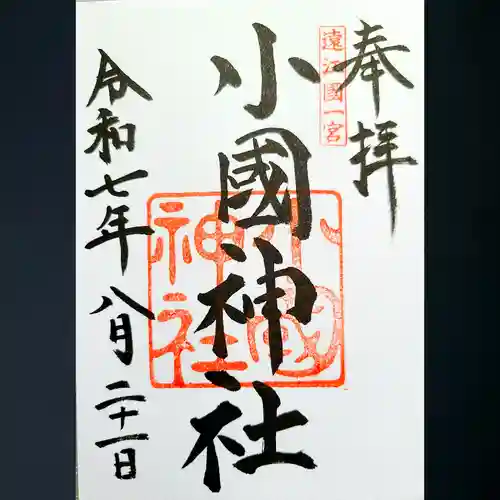 奉拝
遠江國一宮
小國神社
小國神社
令和七年八月二十一日